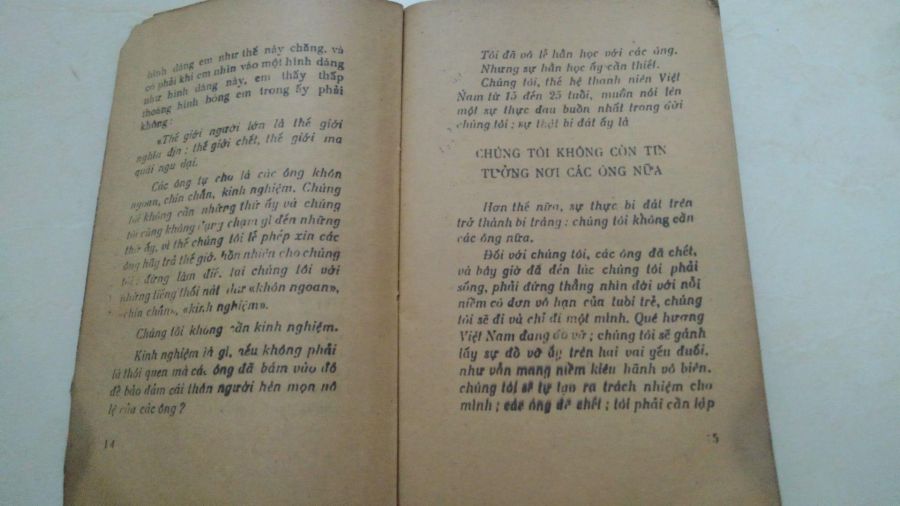 hình dáng em như thế này chăng, và
có phải khi em nhìn vào một hình dáng
như hình dáng này, em thấy thấp
thoáng hình bóng em trong ấy phải
không:
«Thế giới người lớn là thế giới
nghĩa địa; thế giới chết, thế giới ma
quái ngu dại.
Các ông tự cho là các ông khôn
ngoan, chín chắn, kinh nghiệm. Chúng
tôi không cần những thứ ấy và chúng
tôi cũng không dụng chạm gì đến những
thứ ấy, vì thế chúng tôi lễ phép xin các
ông hãy trả thế giới hồn nhiên cho chúng
tôi; đừng làm điếc tai chúng tôi với
những tiếng thối nát như «khôn ngoan»,
«chín chắn», «kinh nghiệm».
Chúng tôi không cần kinh nghiệm.
Kinh nghiệm là gì, nếu không phải
là thói quen mà các ông đã bám vào đó
để bảo đảm cái thân người hèn mọn nô
lệ của các ông?
14
Tôi đã vô lễ hằn học với các ông.
Nhưng sự hằn học ấy cần thiết.
Chúng tôi, thế hệ thanh niên Việt
Nam từ 15 đến 25 tuổi, muốn nói lên
một sự thực đau buồn nhất trong đời
chúng tôi; sự thật bi đát ấy là
CHÚNG TÔI KHÔNG CÒN TIN
TƯỞNG NƠI CÁC ÔNG NỮA
Hơn thế nữa, sự thực bi đát trên
trở thành bi tráng: chúng tôi không cần
các ông nữa.
Đối với chúng tôi, các ông đã chết,
và bây giờ đã đến lúc chúng tôi phải
sống, phải đứng thẳng nhìn đời với nỗi
niềm cô đơn vô hạn của tuổi trẻ, chúng
tôi sẽ đi và chỉ đi một mình. Quê hương
Việt Nam đang đổ vỡ; chúng tôi sẽ gánh
lấy sự đổ vỡ ấy trên hai vai yếu đuối,
như vẫn mang niềm kiêu hãnh vô biên.
chúng tôi sẽ tự tạo ra trách nhiệm cho
mình; các ông đã chết; tôi phải cần lập
15